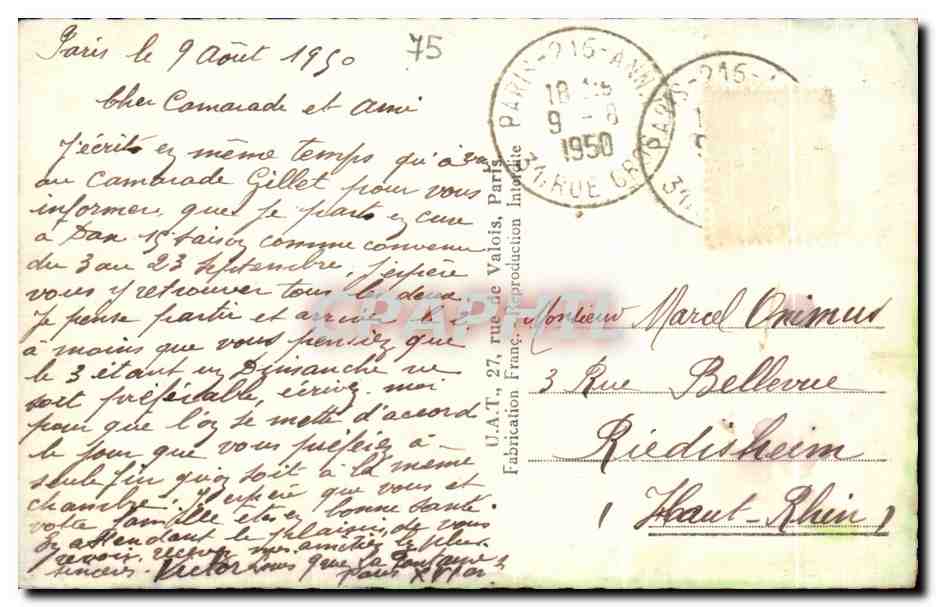 Paris le 9 Août 1950
75
Cher Camarade et ami
J'écrits en même temps qu'à vous
au Camarade Gillet pour vous
informer, que je parts en cure
à Dax 15 saison comme convenu
du 3 au 23 Septembre, j'espère
vous y retrouver tous les deux.
Je pense partir et arriver le 2
à moins que vous pensiez que
le 3 étant un Dimanche ne
soit préférable, écrivez-moi
pour que l'on se mette d'accord
le jour que vous préférez à
seule fin qu'on soit à la même
chambre. J'espère que vous et
votre famille etes en bonne santé.
En attendant le plaisir de vous
revoir, recevez mes amitiés les plus
sincères. Victor
Paris XVI
PARIS-216-ANN
18
9 - 8
1950
31, RUE
PARIS-216-
31
U.A.T., 27, rue de Valois, Paris
Fabrication Franç. Reproduction Interdite
CPAPHIL
Monsieur Marcel Onimus
3 Rue Bellevue
Riedisheim
(Haut-Rhin)